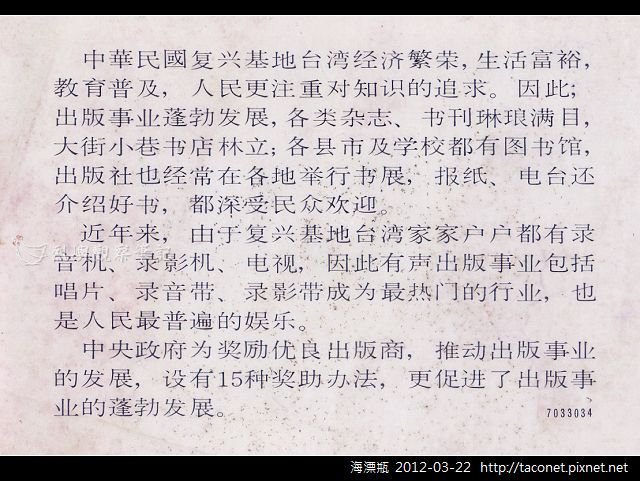 中華民國复兴基地台湾经济繁荣，生活富裕，
教育普及，人民更注重对知识的追求。因此；
出版事业蓬勃发展，各类杂志、书刊琳琅满目，
大街小巷书店林立；各县市及学校都有图书馆，
出版社也经常在各地举行书展，报纸、电台还
介绍好书，都深受民众欢迎。
近年来，由于复兴基地台湾家家户户都有录
音机、录影机、电视，因此有声出版事业包括
唱片、录音带、录影带成为最热门的行业，也
是人民最普遍的娱乐。
中央政府为奖励优良出版商，推动出版事业
的发展，设有15种奖助办法，更促进了出版事
业的蓬勃发展。
7033034
海漂瓶 2012-03-22 http://taconet.pixnet.net